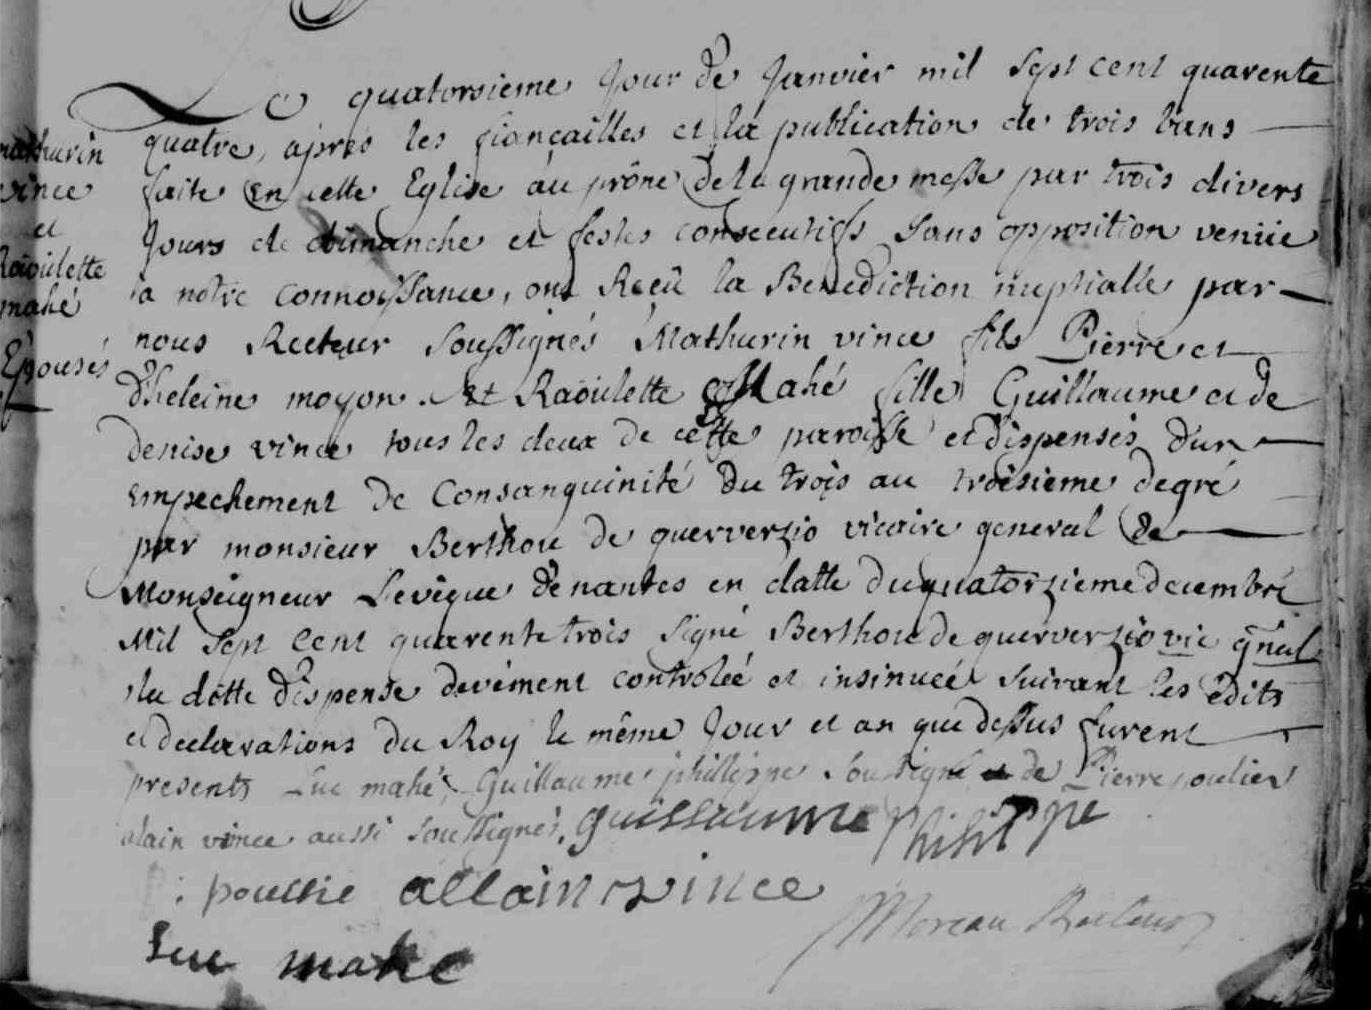 mathurin
vince
et
Raoulette
mahé
Epousés
Le quatorsieme Jour de Janvier mil sept cent quarente
quatre, apres les fiançailles et la publication de trois bans
faite en cette Eglise au prône de la grande messe par trois divers
Jours de dimanche et festes consecutifs sans opposition venüe
a notre connoissance, ont Receü la Benediction nuptialle par
nous Recteur soussignés Mathurin vince fils Pierre et
d'heleine moyon. Et Raoulette Mahé fille Guillaume et de
denise vince tous les deux de cette paroisse et dispensés d'un
empechement de Consanguinité du trois au troisieme degré
par monsieur Berthou de querverzio vicaire general de
Monseigneur Levêque de nantes en datte du quatorzieme decembre
Mil sept cent quarente trois signé Berthou de querverzio vic gñal
la ditte dispense devément controlée et insinuée suivant les edits
et declarations du Roy le même Jour et an que dessus furent
presents Luc mahé, Guillaume phillippe soussigné et de Pierre poulier
alain vince aussi soussignés. guillaume Philippe
: poullie allain vince
Moreau Recteur
Luc mahe